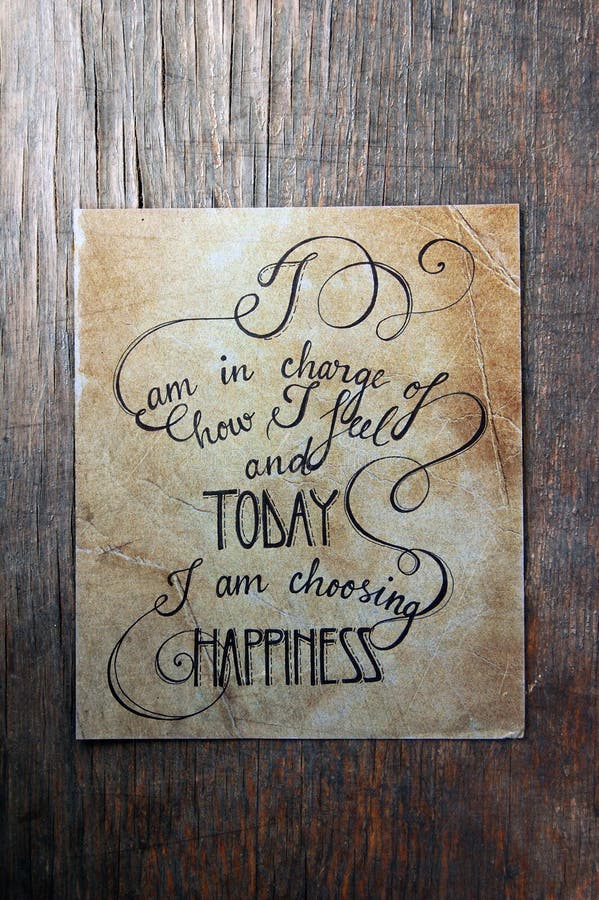 I
am in charge of
how I feel
and
TODAY
I am choosing
HAPPINESS